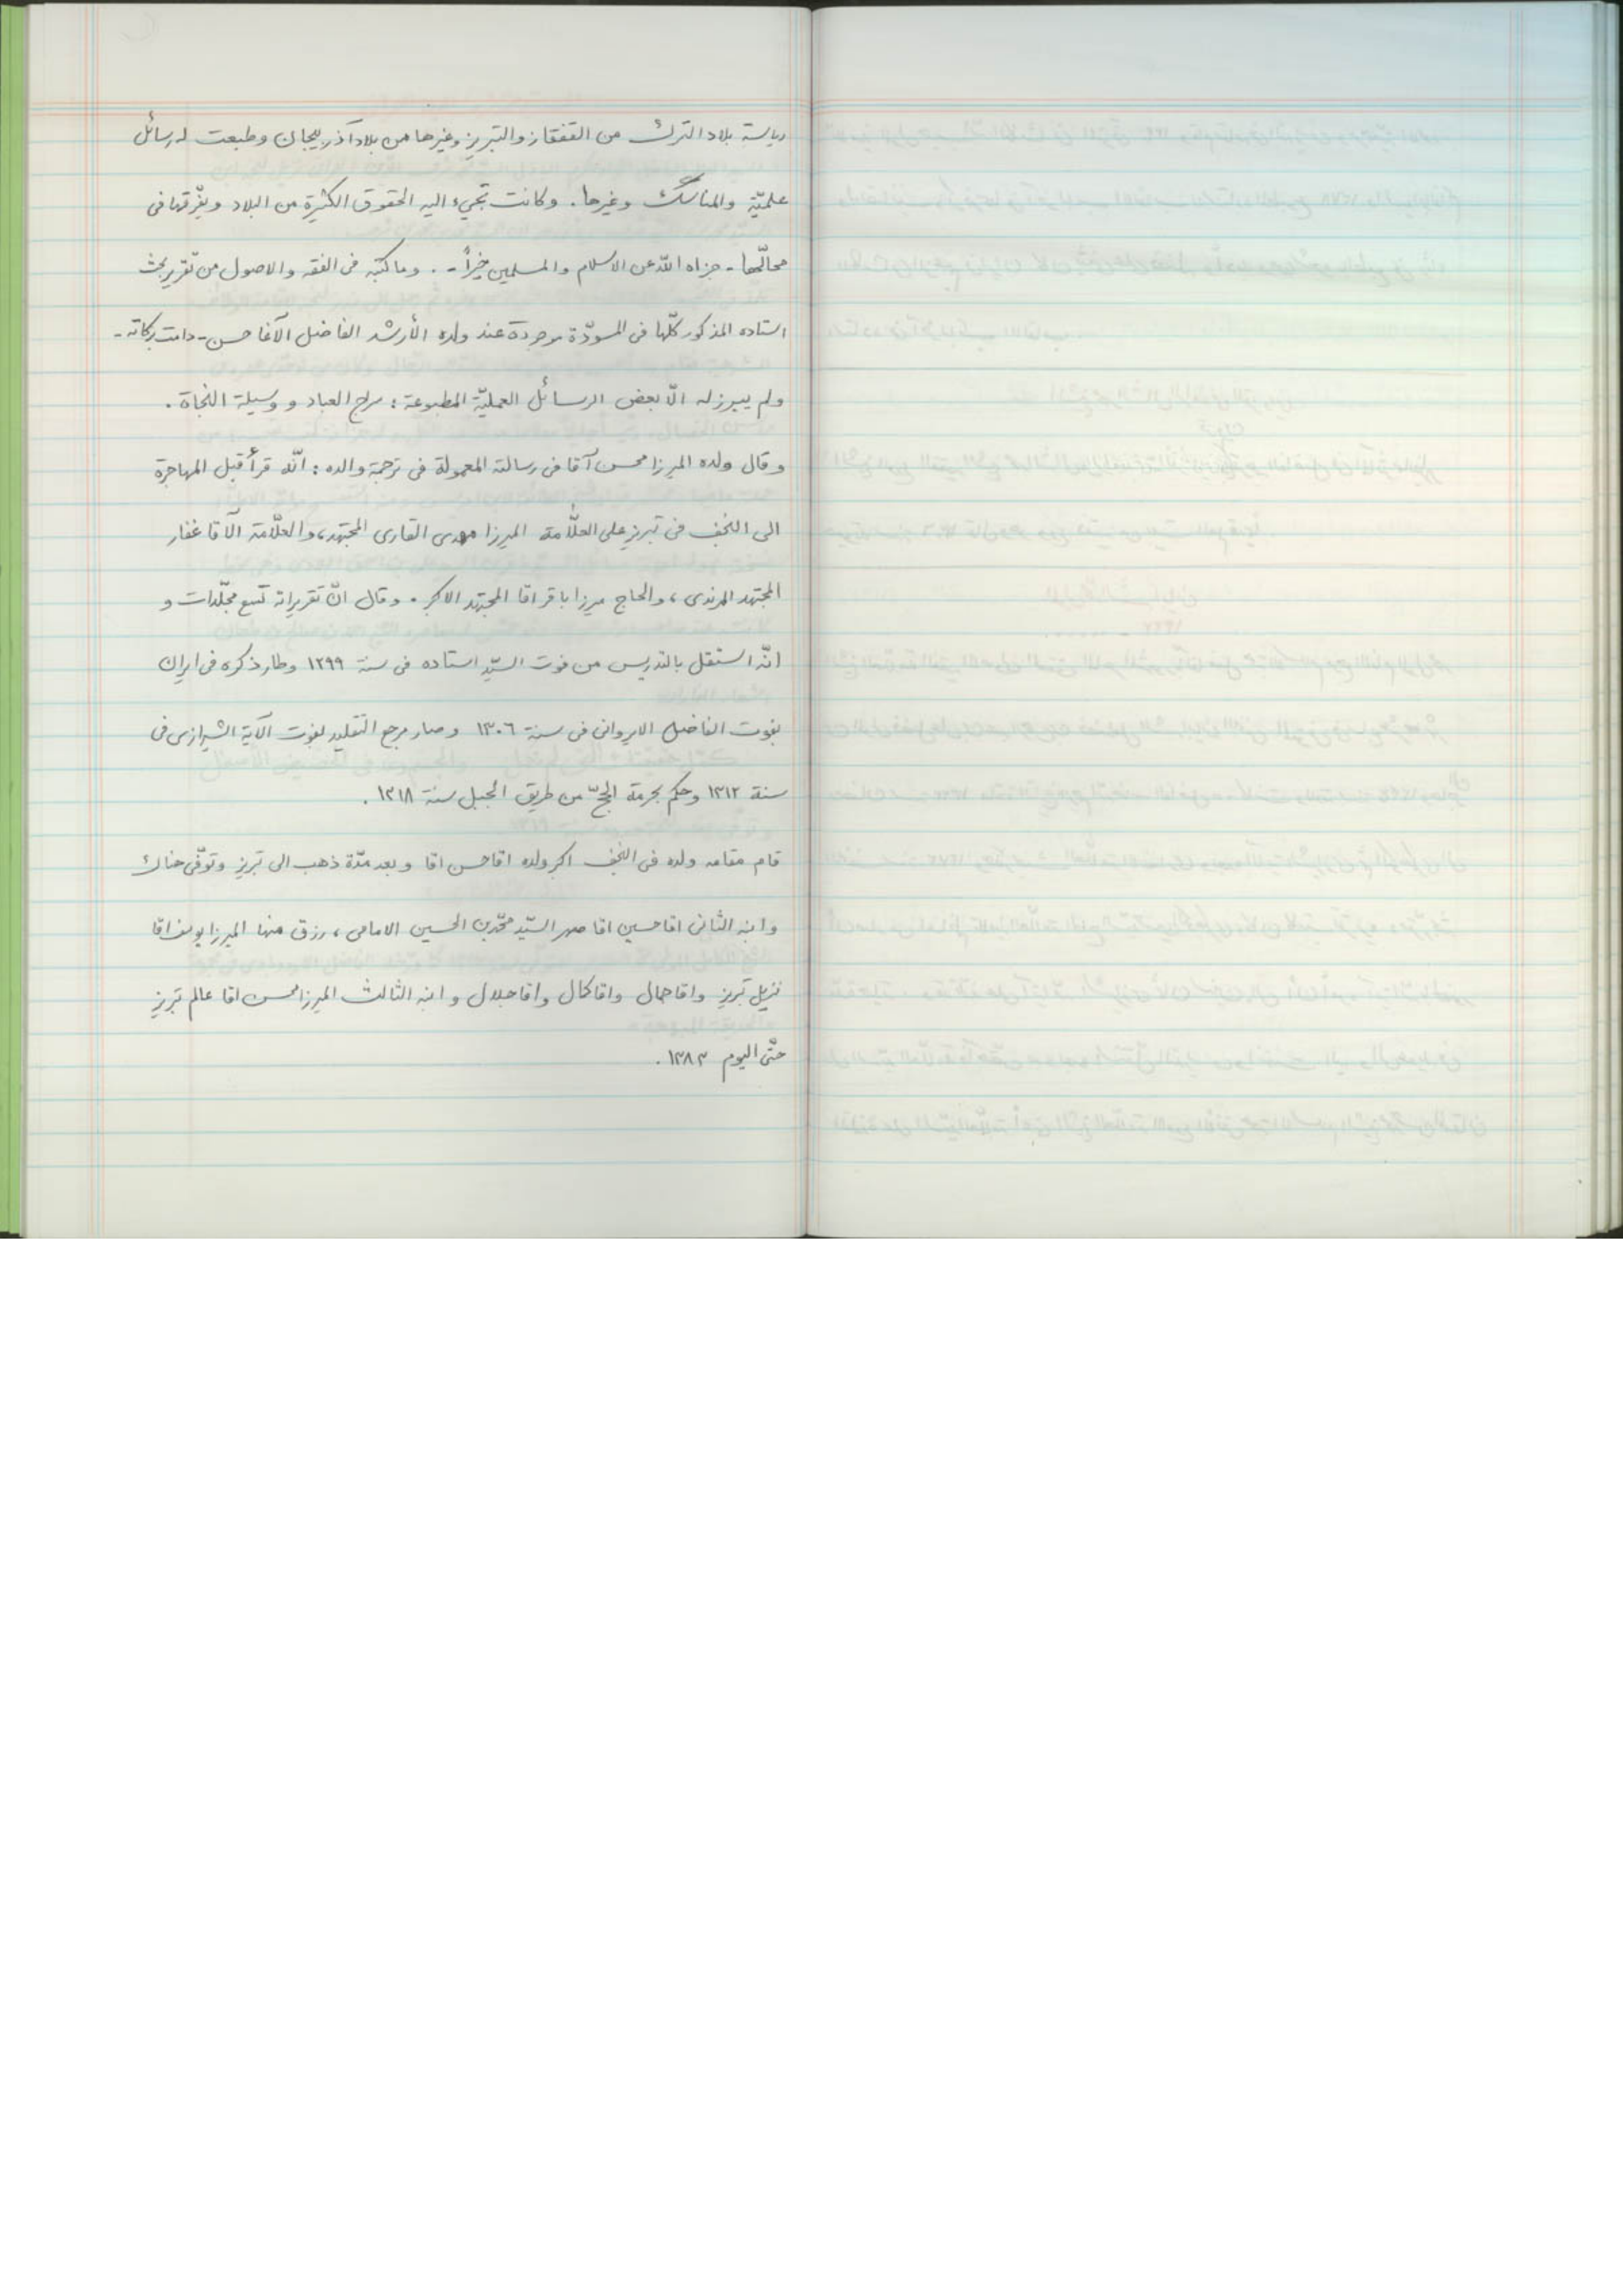 رياسة بلاد الترك من القفقاز والتبريز وغيرها من بلاد آذربيجان وطبعت له رسائل
علميّة والمناسك وغيرها. وكانت تجيء اليه الحقوق الكثيرة من البلاد ويفرّقها فى
محالّها - جزاه اللّه عن الاسلام والمسلمين خيراً -. وما كتبه فى الفقه والاصول من تقرير بحث
استاده المذكور كلّها فى المسوّدة موجودة عند ولده الأرشد الفاضل الآغا حسن - دامت بركاته -
ولم يبرز له الّا بعض الرسائل العمليّة المطبوعة: سراج العباد و وسيلة النجاة.
و قال ولده الميرزا محسن آقا فى رسالته المعمولة فى ترجمة والده: انّه قرأ قبل المهاجرة
الى النجف فى تبريز على العلّامة الميرزا مهدى القارى المجتهد، والعلّامة الآقا غفار
المجتهد المرندى، والحاج ميرزا باقر اقا المجتهد الاكبر. وقال انّ تقريراته تسع مجلّدات و
انّه استقل بالتدريس من فوت السيّد استاده فى سنة ١٢٩٩ وطار ذكره فى ايران
بفوت الفاضل الايروانى فى سنة ١٣٠٦ وصار مرجع التقليد بفوت الآية الشيرازى فى
سنة ١٣١٢ وحكم بحرمة الحجّ من طريق الجبل سنة ١٣١٨.
قام مقامه ولده فى النجف اكبر ولده اقا حسن اقا و بعد مدّة ذهب الى تبريز وتوفّى هناك
وابنه الثانى اقا حسين اقا صهر السيّد محمّد بن الحسين الامامى، رزق منها الميرزا يوسف اقا
نزيل تبريز واقا جمال واقا كمال واقا جلال و ابنه الثالث الميرزا محسن اقا عالم تبريز
حتّى اليوم ١٣٨٣.